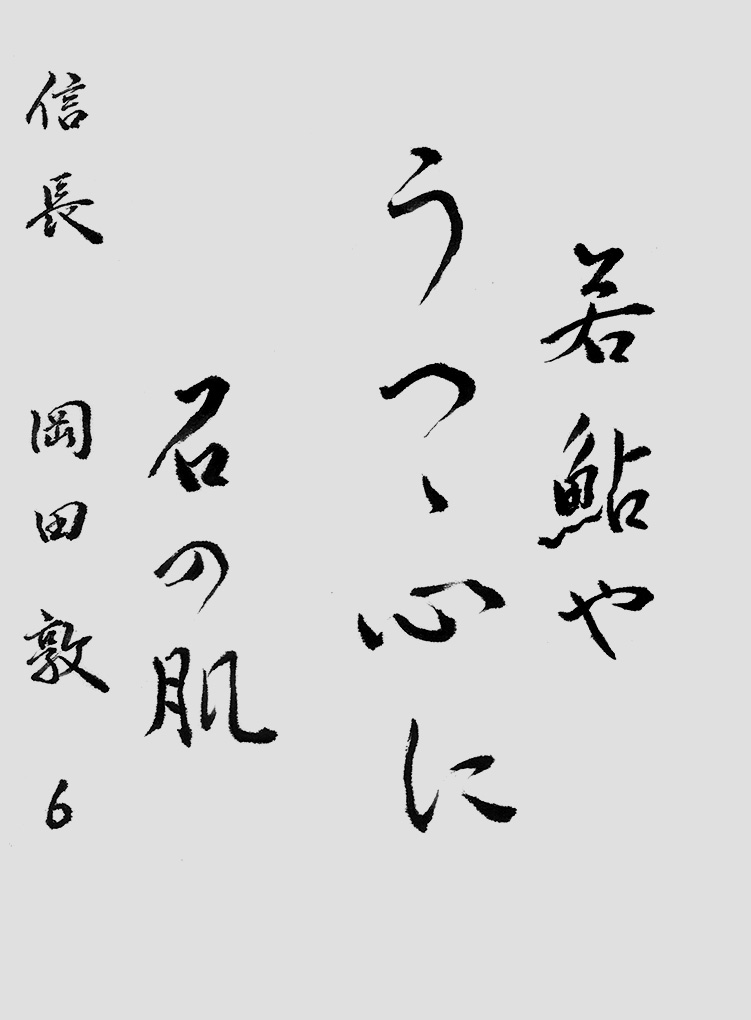 若鮎や
うつゝ心に
石の肌
信長 岡田敦 6